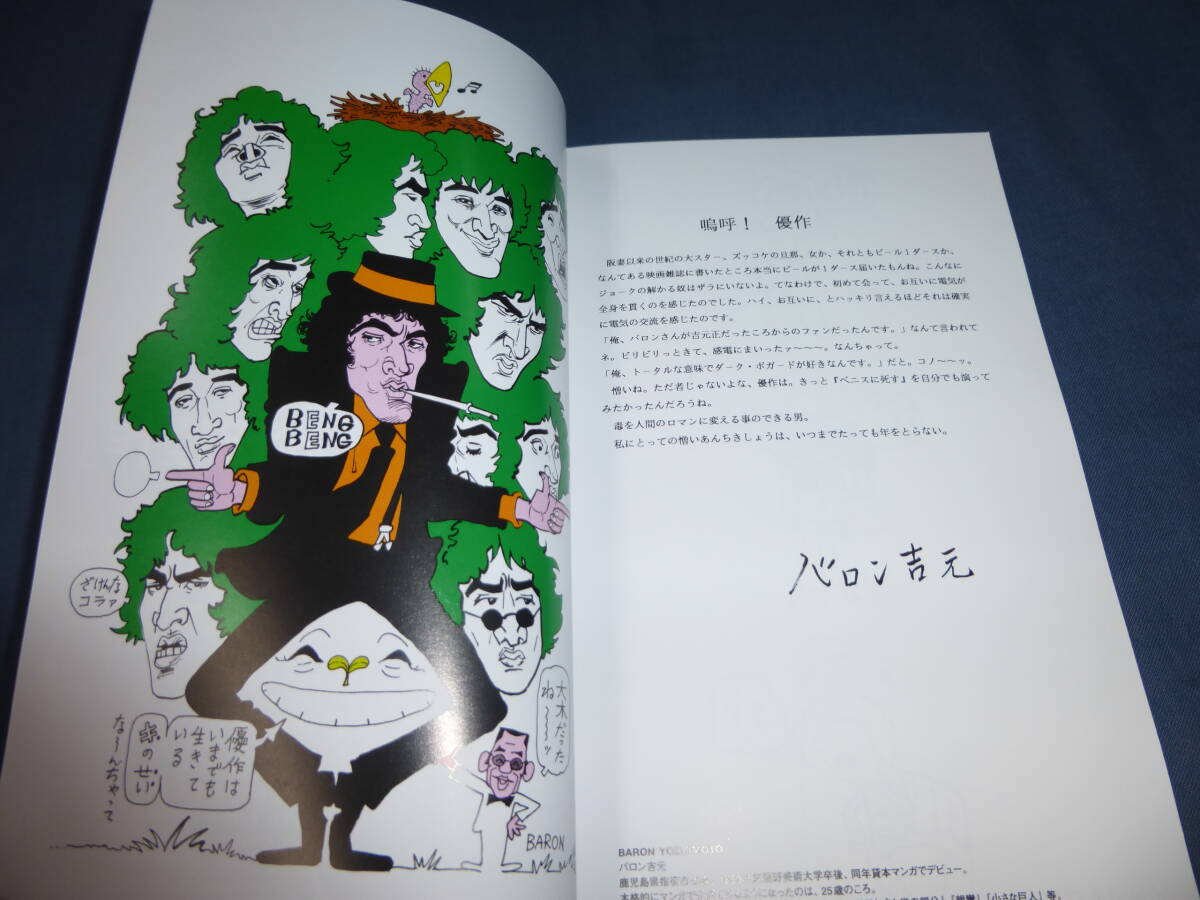 BENG
BENG
ざけんな
コラァ
大木だった
ね〜〜〜ッ
優作は
いまでも
生きて
いる
木のせい
な〜んちゃって
BARON
嗚呼！　優作
阪妻以来の世紀の大スター、ズッコケの旦那、女か、それともビール1ダースか、
なんてある映画雑誌に書いたところ本当にビールが1ダース届いたもんね。こんなに
ジョークの解かる奴はザラにいないよ。てなわけで、初めて会って、お互いに電気が
全身を貫くのを感じたのでした。ハイ、お互いに、とハッキリ言えるほどそれは確実
に電気の交流を感じたのです。
「俺、バロンさんが吉元正だったころからのファンだったんです。」なんて言われて
ネ。ビリビリっときて、感電にまいったァ〜〜〜。なんちゃって。
「俺、トータルな意味でダーク・ボガードが好きなんです。」だと。コノ〜〜ッ。
憎いね。ただ者じゃないよな、優作は。きっと『ベニスに死す』を自分でも演って
みたかったんだろうね。
毒を人間のロマンに変える事のできる男。
私にとっての憎いあんちきしょうは、いつまでたっても年をとらない。
バロン吉元
BARON
バロン吉元
鹿児島県指宿 美術大学卒後、同年貸本マンガでデビュー。
本格的にマンガ なったのは、25歳のころ。
「小さな巨人」等。